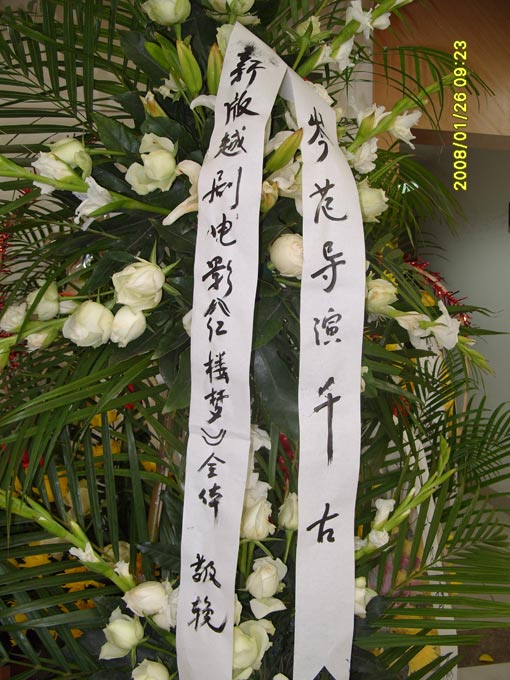 岑范导演千古
新版越剧电影《红楼梦》全体 敬挽
2008/01/26 09:23